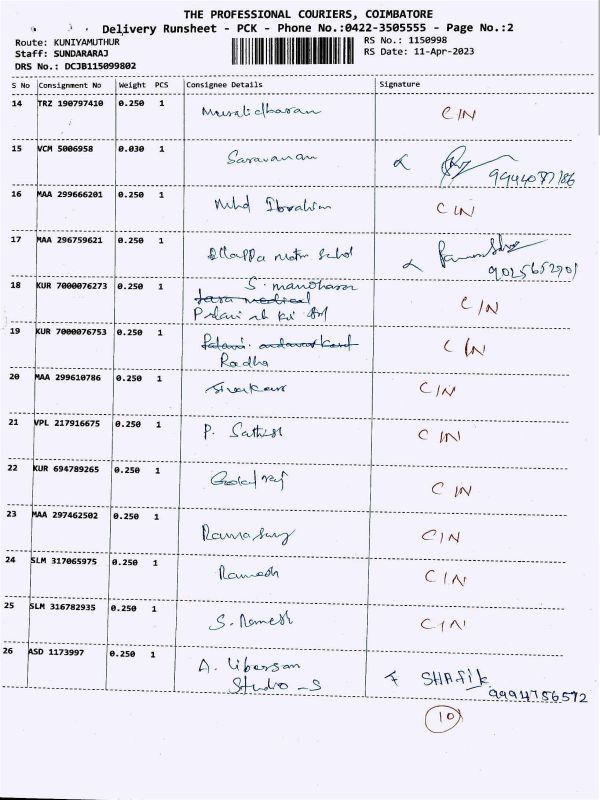 THE PROFESSIONAL COURIERS, COIMBATORE
Delivery Runsheet - PCK - Phone No.:0422-3505555 - Page No.:2
Route: KUNIYAMUTHUR RS No.: 1150998
Staff: SUNDARARAJ RS Date: 11-Apr-2023
DRS No.: DCJB115099802
S No Consignment No Weight PCS Consignee Details Signature
14 TRZ 190797410 0.250 1 Muralidharan C/N
15 VCM 5006958 0.030 1 Saravanan
16 MAA 299666201 0.250 1 Mhd Ibrahim C/N
17 MAA 296759621 0.250 1
18 KUR 7000076273 0.250 1 S. manoharan C/N
19 KUR 7000076753 0.250 1 C/N
Radha
20 MAA 299610786 0.250 1 Sivakumar C/N
21 VPL 217916675 0.250 1 P. Sathish C/N
22 KUR 694789265 0.250 1 C/N
23 MAA 297462502 0.250 1 Ramasamy C/N
24 SLM 317065975 0.250 1 Ramesh C/N
25 SLM 316782935 0.250 1 S. Ramesh C/N
26 ASD 1173997 0.250 1 A. SHAfik
Studio -S 9994756572
10